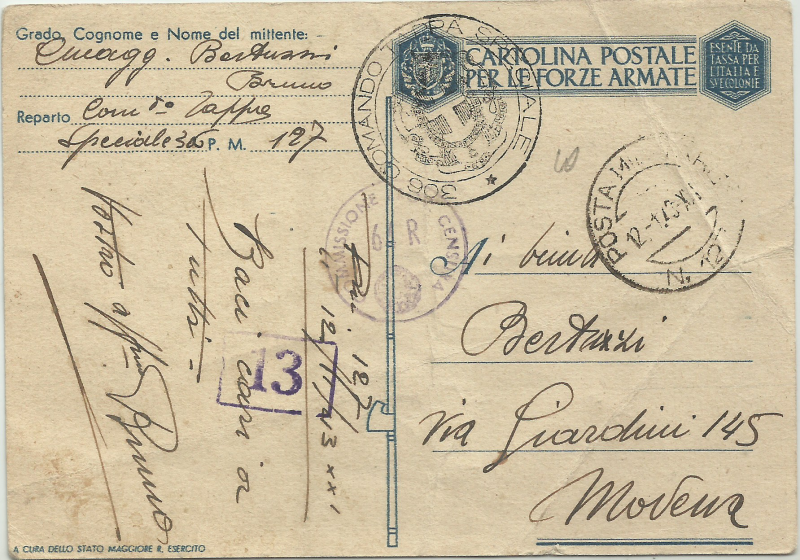 Grado, Cognome e Nome del mittente:
Bertuzzi
Bruno
Reparto Com do Tappa
Speciale 306 P. M. 127
CARTOLINA POSTALE
PER LE FORZE ARMATE
ESENTE DA
TASSA PER
L'ITALIA E
SVE COLONIE
306 COMANDO TAPPA SPECIALE
POSTA MILITARE
12-1-43-XXI
N. 127
COMMISSIONE CENSURA
6 R
P.M. 127
12/1/43 XXI
Baci cari a
tutti =
Vostro aff.mo Bruno
13
Bertuzzi
Via Giardini 145
Modena
A CURA DELLO STATO MAGGIORE R. ESERCITO